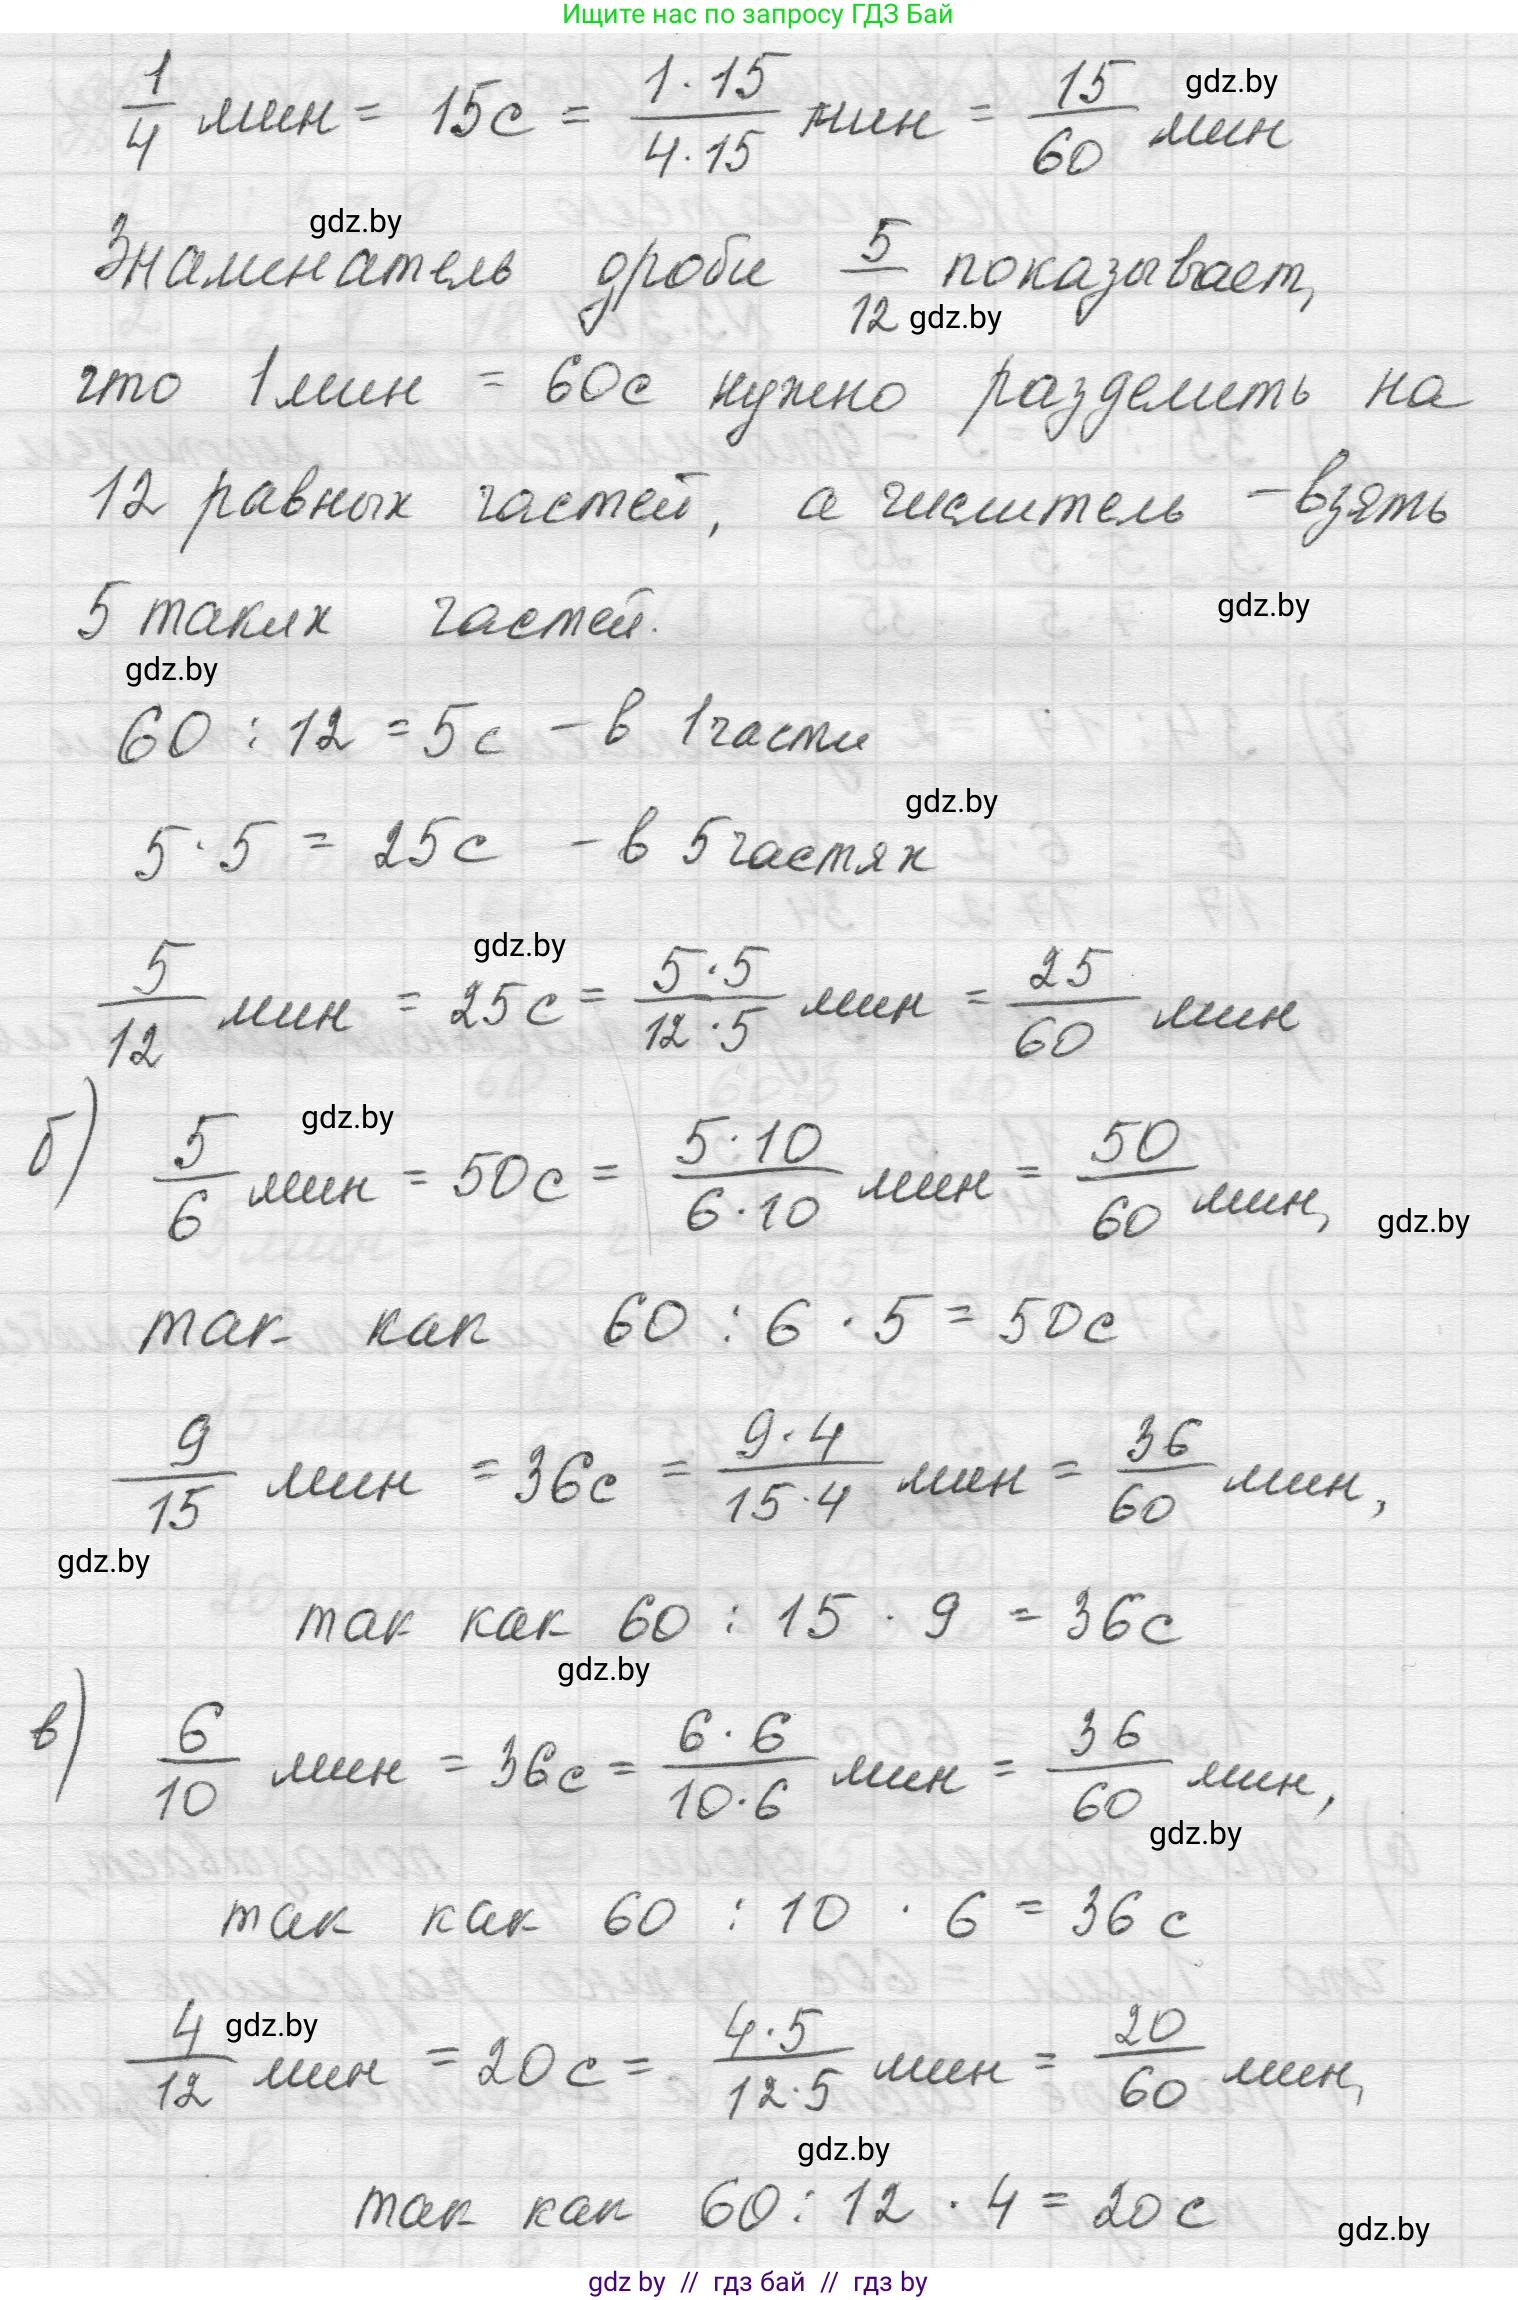 Ищите нас по запросу ГДЗ Бай
1/4 мин = 15с = 1·15/4·15 мин = 15/60 мин
gdz.by
gdz.by
Знаменатель дроби 5/12 показывает,
gdz.by
что 1 мин = 60с нужно разделить на
12 равных частей, а числитель – взять
5 таких частей.
gdz.by
gdz.by
60 : 12 = 5с – в 1 части
gdz.by
5·5 = 25с – в 5 частях
gdz.by
5/12 мин = 25с = 5·5/12·5 мин = 25/60 мин
gdz.by
б) 5/6 мин = 50с = 5·10/6·10 мин = 50/60 мин,
gdz.by
так как 60 : 6 · 5 = 50с
9/15 мин = 36с = 9·4/15·4 мин = 36/60 мин,
gdz.by
так как 60 : 15 · 9 = 36с
gdz.by
в) 6/10 мин = 36с = 6·6/10·6 мин = 36/60 мин,
gdz.by
так как 60 : 10 · 6 = 36 с
gdz.by
4/12 мин = 20с = 4·5/12·5 мин = 20/60 мин,
gdz.by
так как 60 : 12 · 4 = 20с
gdz.by
gdz by // гдз бай // гдз by